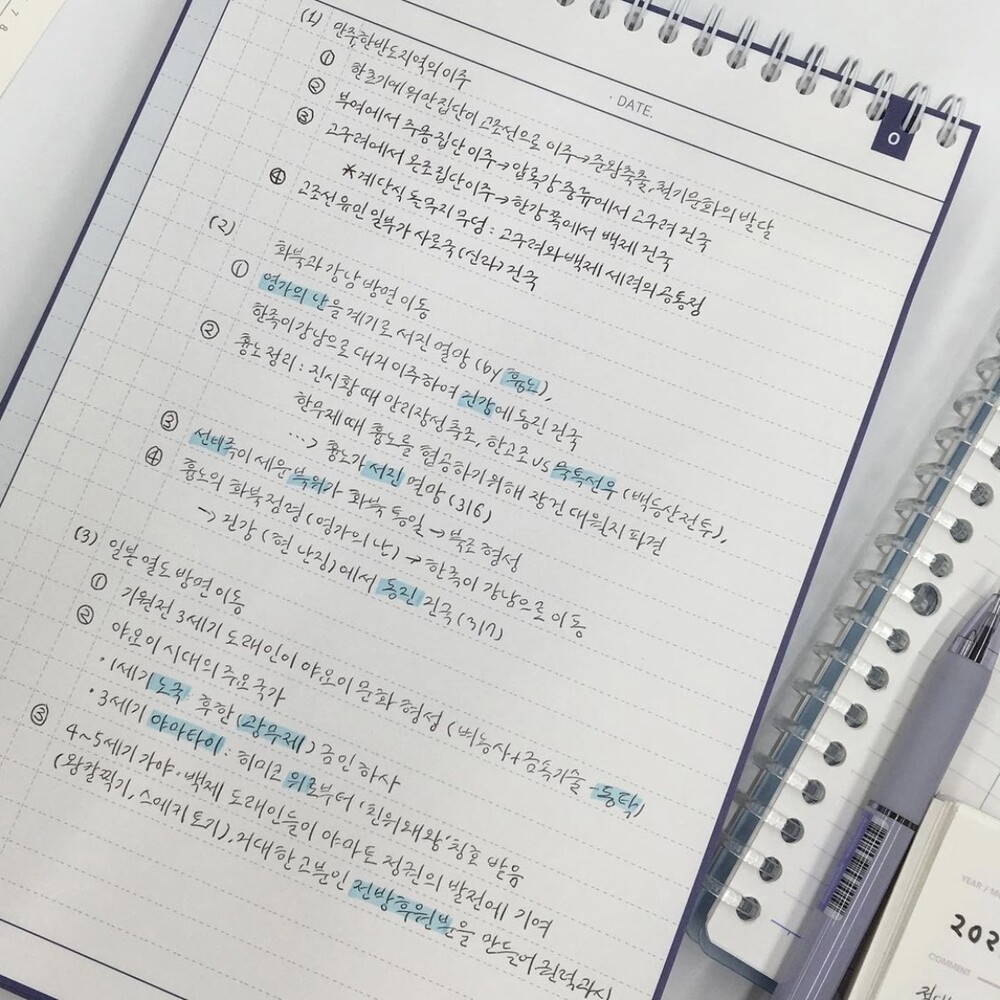 DATE.
0
(1) 만주, 한반도 지역의 이주
① 한 초기에 위만 집단이 고조선으로 이주 → 준왕 축출, 철기 문화의 발달
② 부여에서 주몽 집단 이주 → 압록강 중류에서 고구려 건국
③ 고구려에서 온조 집단 이주 → 한강 쪽에서 백제 건국
* 계단식 돌무지 무덤 : 고구려와 백제 세력의 공통점
④ 고조선 유민 일부가 사로국(신라) 건국
(2) 화북과 강남 방면 이동
① 영가의 난을 계기로 서진 멸망 (by 흉노),
한족이 강남으로 대거 이주하여 건강에 동진 건국
② 흉노 정리 : 진시황 때 만리장성 축조, 한고조 vs 묵특선우 (백등산 전투),
한무제 때 흉노를 협공하기 위해 장건 대월지 파견
…> 흉노가 서진 멸망 (316)
③ 선비족이 세운 북위가 화북 통일 → 북조 형성
④ 흉노의 화북 점령 (영가의 난) → 한족이 강남으로 이동
→ 건강 (현 난징)에서 동진 건국 (317)
(3) 일본 열도 방면 이동
① 기원전 3세기 도래인이 야요이 문화 형성 (벼농사+금속기술 -동탁)
② 야요이 시대의 주요 국가
· 1세기 노국 : 후한 (광무제) 금인 하사
· 3세기 야마타이 : 히미코 위로부터 '친위왜왕' 칭호 받음
③ 4~5세기 가야·백제 도래인들이 야마토 정권의 발전에 기여
(왕칼찍기, 스에키 토기), 거대한 고분인 전방후원분을 만들어 권력 과시
YEAR / M
202
COMMENT